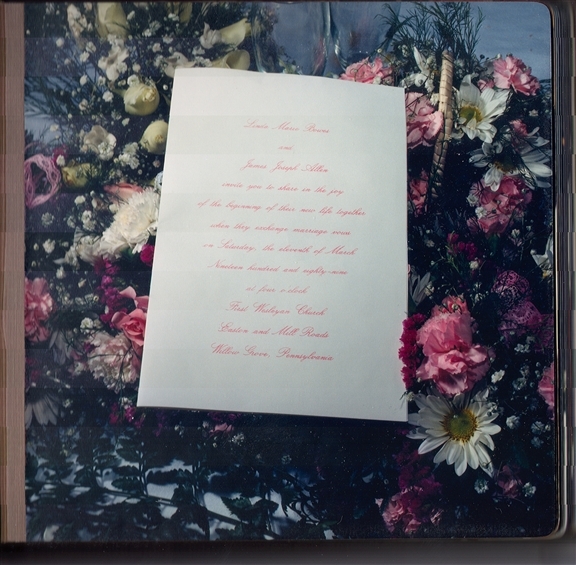 Linda Marie Bruni
and
James Joseph Allen
invite you to share in the joy
of the beginning of their new life together
when they exchange marriage vows
on Saturday, the eleventh of March
Nineteen hundred and eighty-nine
at four o'clock
First Wesleyan Church
Easton and Mill Roads
Willow Grove, Pennsylvania